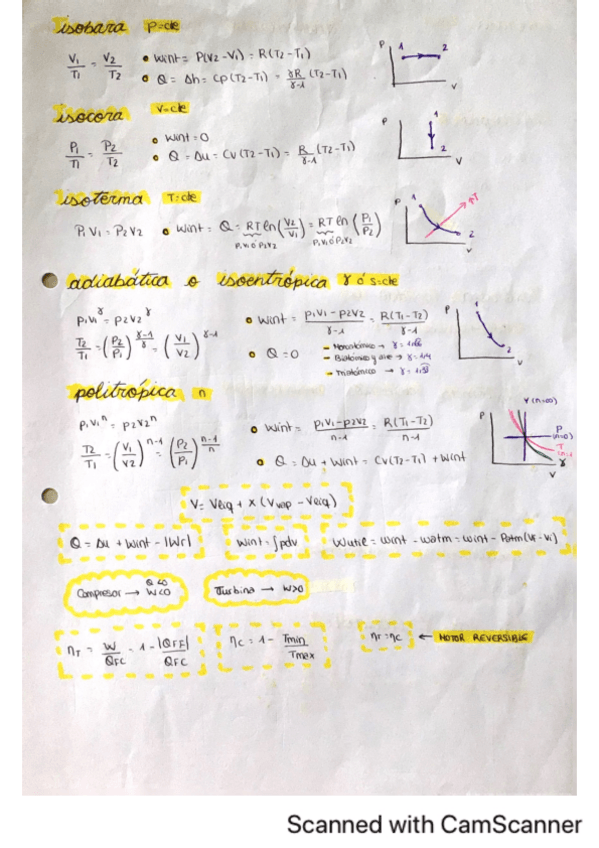 isobara P=cte
V₁/T₁ = V₂/T₂ • Wint = P(V2-V1) = R(T2-T1)
• Q = Δh = Cp(T2-T1) = γR/γ-1 (T2-T1)
P 1 2 V
isocora V=cte
P₁/T₁ = P₂/T₂ • Wint = 0
• Q = Δu = Cv(T2-T1) = R/γ-1 (T2-T1)
P 1 2 V
isoterma T=cte
P₁V₁ = P₂V₂ • Wint = Q = RT ln(V2/V1) = RT ln(P1/P2)
P₁V₁ ó P₂V₂ P₁V₁ ó P₂V₂
P 1 2 ↑T V
adiabática o isoentrópica γ ó s=cte
P₁V₁^γ = P₂V₂^γ • Wint = P1V1 - P2V2/γ-1 = R(T1-T2)/γ-1
T2/T1 = (P2/P1)^γ-1/γ = (V1/V2)^γ-1 • Q=0
- Monoatómico → γ = 1,66
- Biatómico y aire → γ = 1,4
- Triatómico → γ = 1,33
P 1 2 V
politrópica n
P₁V₁^n = P₂V₂^n • Wint = P1V1-P2V2/n-1 = R(T1-T2)/n-1
T2/T1 = (V1/V2)^n-1 = (P2/P1)^n-1/n • Q = Δu + Wint = Cv(T2-T1) + Wint
P V(n=∞) P (n=0) T (n=1) γ V
V = Vliq + x (Vvap - Vliq)
Q = Δu + Wint - |Wr| Wint = ∫pdv Wutil = Wint - Watm = Wint - Patm(Vf-Vi)
Compresor → Q<0 W<0 Turbina → W>0
ηT = W/QFC = 1 - |QFF|/QFC ηC = 1 - Tmin/Tmax ηT = ηC ← MOTOR REVERSIBLE
Scanned with CamScanner